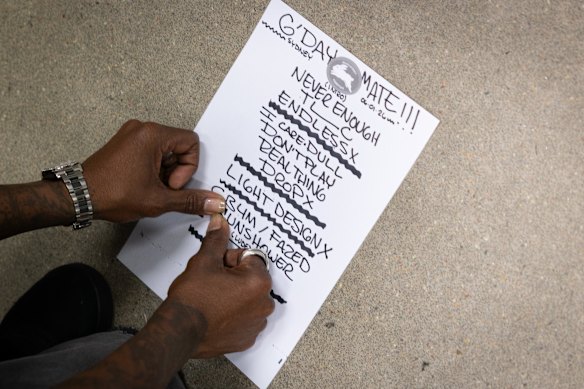 G'DAY MATE!!!
SYDNEY
(INTRO)
NEVER ENOUGH
TLC
ENDLESSX
I CARE·DULL
DON'T PLAY
REAL THING
DROPX
LIGHT DESIGNX
/ FAZED
SUNSHOWER